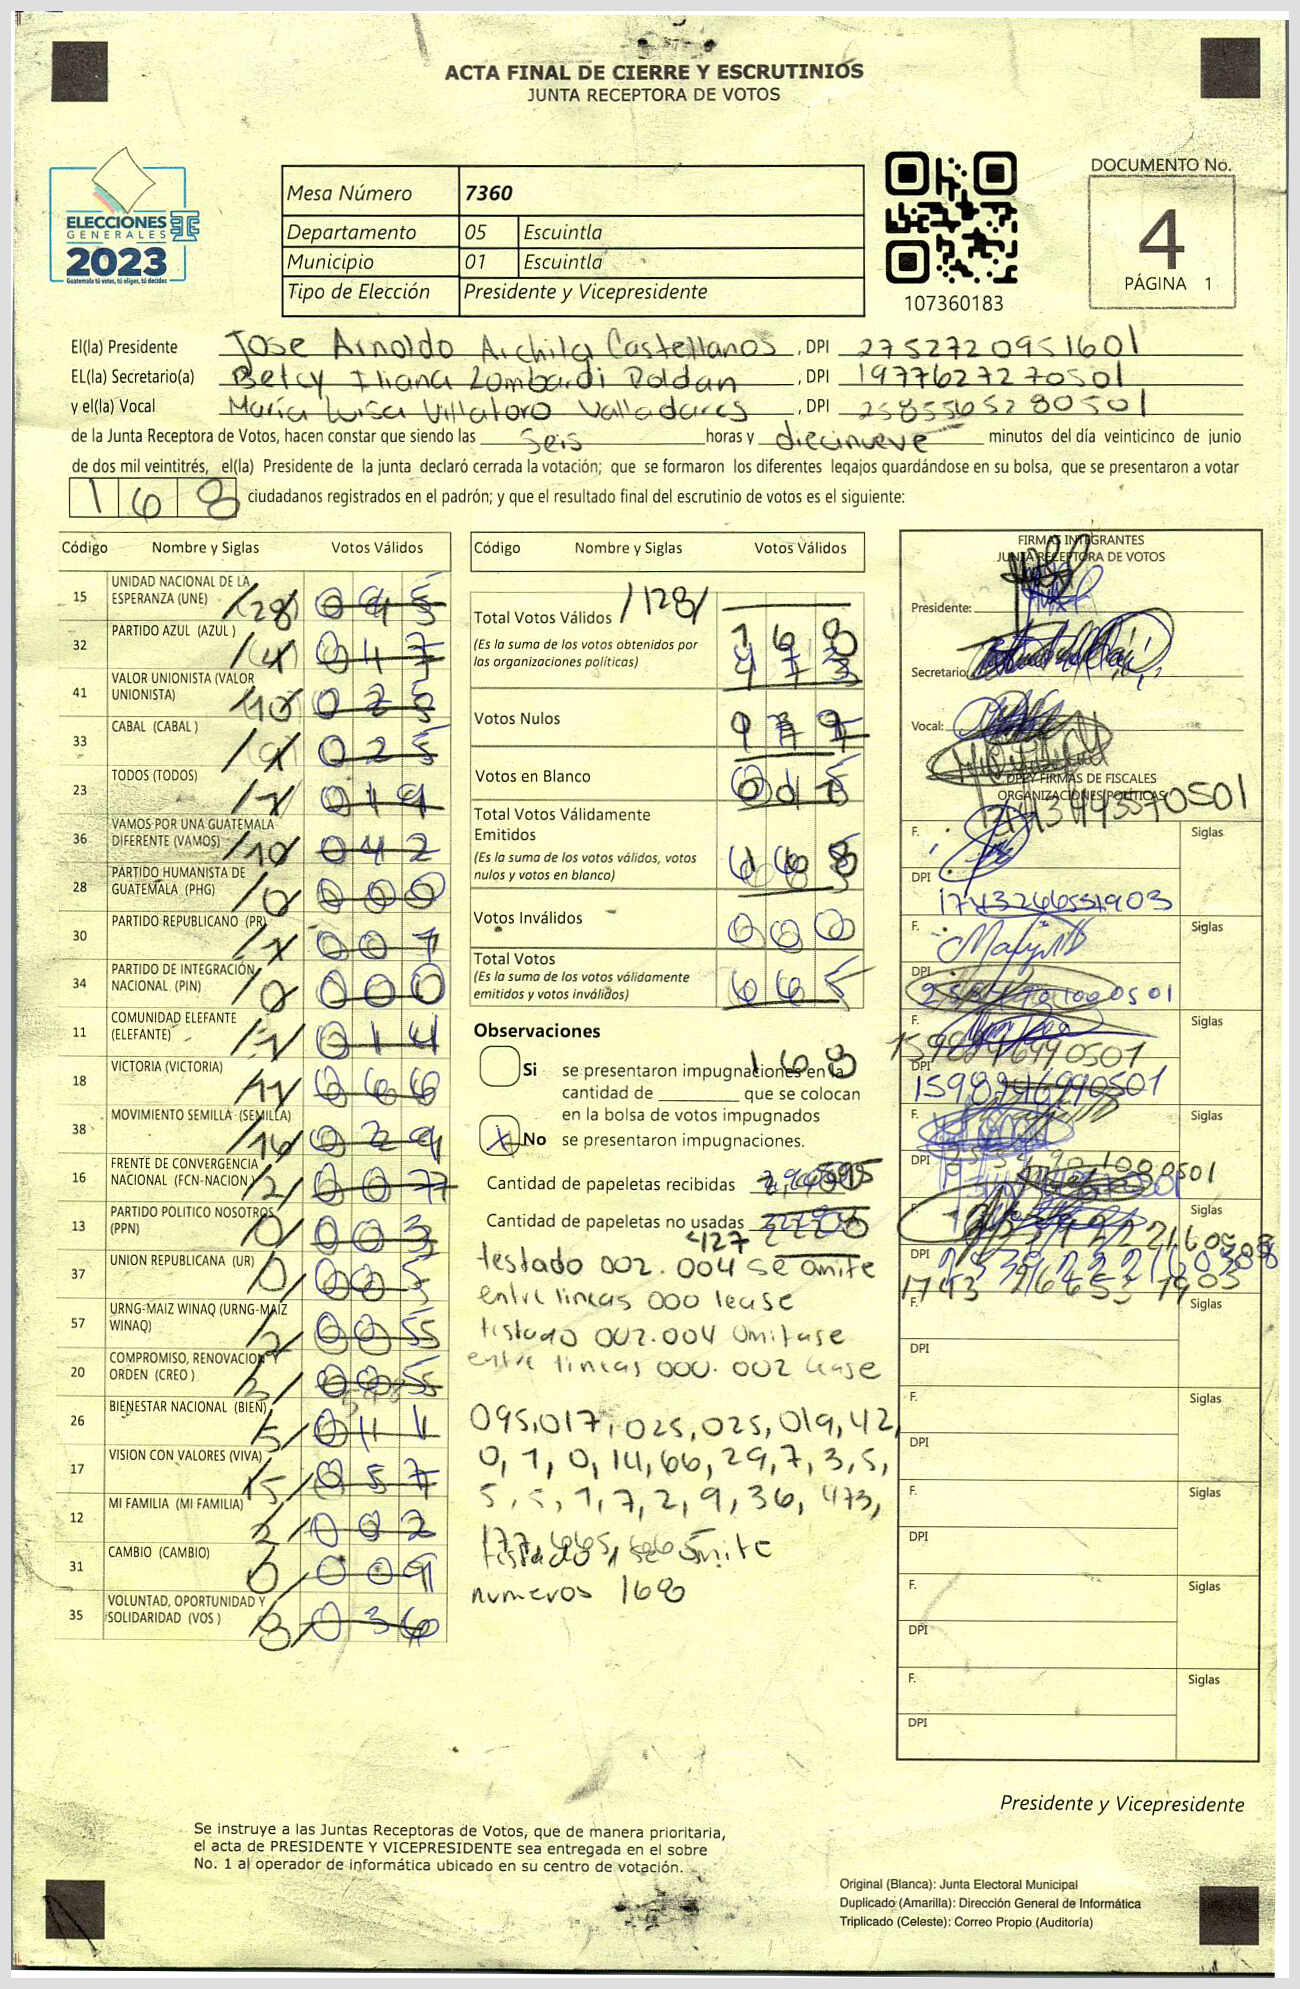 ACTA FINAL DE CIERRE Y ESCRUTINIOS
JUNTA RECEPTORA DE VOTOS
ELECCIONES
GENERALES
2023
Guatemala tú votas, tú eliges, tú decides
Mesa Número 7360
Departamento 05 Escuintla
Municipio 01 Escuintla
Tipo de Elección Presidente y Vicepresidente
107360183
DOCUMENTO No.
4
PÁGINA 1
El(la) Presidente Jose Arnoldo Archila Castellanos, DPI 2752720951601
EL(la) Secretario(a) Betcy Iliana Lombardi Roldan, DPI 1977627270501
y el(la) Vocal María Luisa Villatoro Valladares, DPI 2585565280501
de la Junta Receptora de Votos, hacen constar que siendo las seis horas y diecinueve minutos del día veinticinco de junio
de dos mil veintitrés, el(la) Presidente de la junta declaró cerrada la votación; que se formaron los diferentes legajos guardándose en su bolsa, que se presentaron a votar
168 ciudadanos registrados en el padrón; y que el resultado final del escrutinio de votos es el siguiente:
Código Nombre y Siglas Votos Válidos
15 UNIDAD NACIONAL DE LA
ESPERANZA (UNE) /28/
32 PARTIDO AZUL (AZUL ) 047
41 VALOR UNIONISTA (VALOR
UNIONISTA) 10 025
33 CABAL (CABAL ) 025
23 TODOS (TODOS) 019
36 VAMOS POR UNA GUATEMALA
DIFERENTE (VAMOS) /10/ 042
28 PARTIDO HUMANISTA DE
GUATEMALA (PHG) /0/ 000
30 PARTIDO REPUBLICANO (PR) 001
34 PARTIDO DE INTEGRACIÓN
NACIONAL (PIN) /0/ 000
11 COMUNIDAD ELEFANTE
(ELEFANTE) 014
18 VICTORIA (VICTORIA) 066
38 MOVIMIENTO SEMILLA (SEMILLA) /16/ 029
16 FRENTE DE CONVERGENCIA
NACIONAL (FCN-NACION) /2/ 007
13 PARTIDO POLITICO NOSOTROS
(PPN) /0/ 003
37 UNION REPUBLICANA (UR) /0/ 005
57 URNG-MAIZ WINAQ (URNG-MAIZ
WINAQ) /2/ 005
20 COMPROMISO, RENOVACION Y
ORDEN (CREO ) 3/ 005
26 BIENESTAR NACIONAL (BIEN) 5/ 011
17 VISION CON VALORES (VIVA) 15/ 057
12 MI FAMILIA (MI FAMILIA) 2/ 002
31 CAMBIO (CAMBIO) 0/ 009
35 VOLUNTAD, OPORTUNIDAD Y
SOLIDARIDAD (VOS ) /8/ 036
Código Nombre y Siglas Votos Válidos
Total Votos Válidos /128/ 168
(Es la suma de los votos obtenidos por
las organizaciones políticas) 473
Votos Nulos
Votos en Blanco
Total Votos Válidamente
Emitidos
(Es la suma de los votos válidos, votos
nulos y votos en blanco)
Votos Inválidos 000
Total Votos
(Es la suma de los votos válidamente
emitidos y votos inválidos) 665
Observaciones
168
Si se presentaron impugnaciones en la
cantidad de ________ que se colocan
en la bolsa de votos impugnados
X No se presentaron impugnaciones.
Cantidad de papeletas recibidas
Cantidad de papeletas no usadas
127
testado 002.004 se omite
entre lineas 000 lease
testado 002.004 omitase
entre lineas 000.002 lease
095,017,025,025,019,42,
0,1,0,14,66,29,7,3,5,
5,5,1,7,2,9,36,473,
177,665,665
testado, se omite
numeros 168
FIRMAS INTEGRANTES
JUNTA RECEPTORA DE VOTOS
Presidente:
Secretario
Vocal:
DPI Y FIRMAS DE FISCALES
ORGANIZACIONES POLÍTICAS
F. Siglas
DPI
F. Siglas
DPI
F. Siglas
1598946990501
DPI
1598946990501
F. Siglas
DPI
Siglas
DPI
F. Siglas
DPI
F. Siglas
DPI
F. Siglas
DPI
F. Siglas
DPI
F. Siglas
DPI
Presidente y Vicepresidente
Se instruye a las Juntas Receptoras de Votos, que de manera prioritaria,
el acta de PRESIDENTE Y VICEPRESIDENTE sea entregada en el sobre
No. 1 al operador de informática ubicado en su centro de votación.
Original (Blanca): Junta Electoral Municipal
Duplicado (Amarilla): Dirección General de Informática
Triplicado (Celeste): Correo Propio (Auditoría)